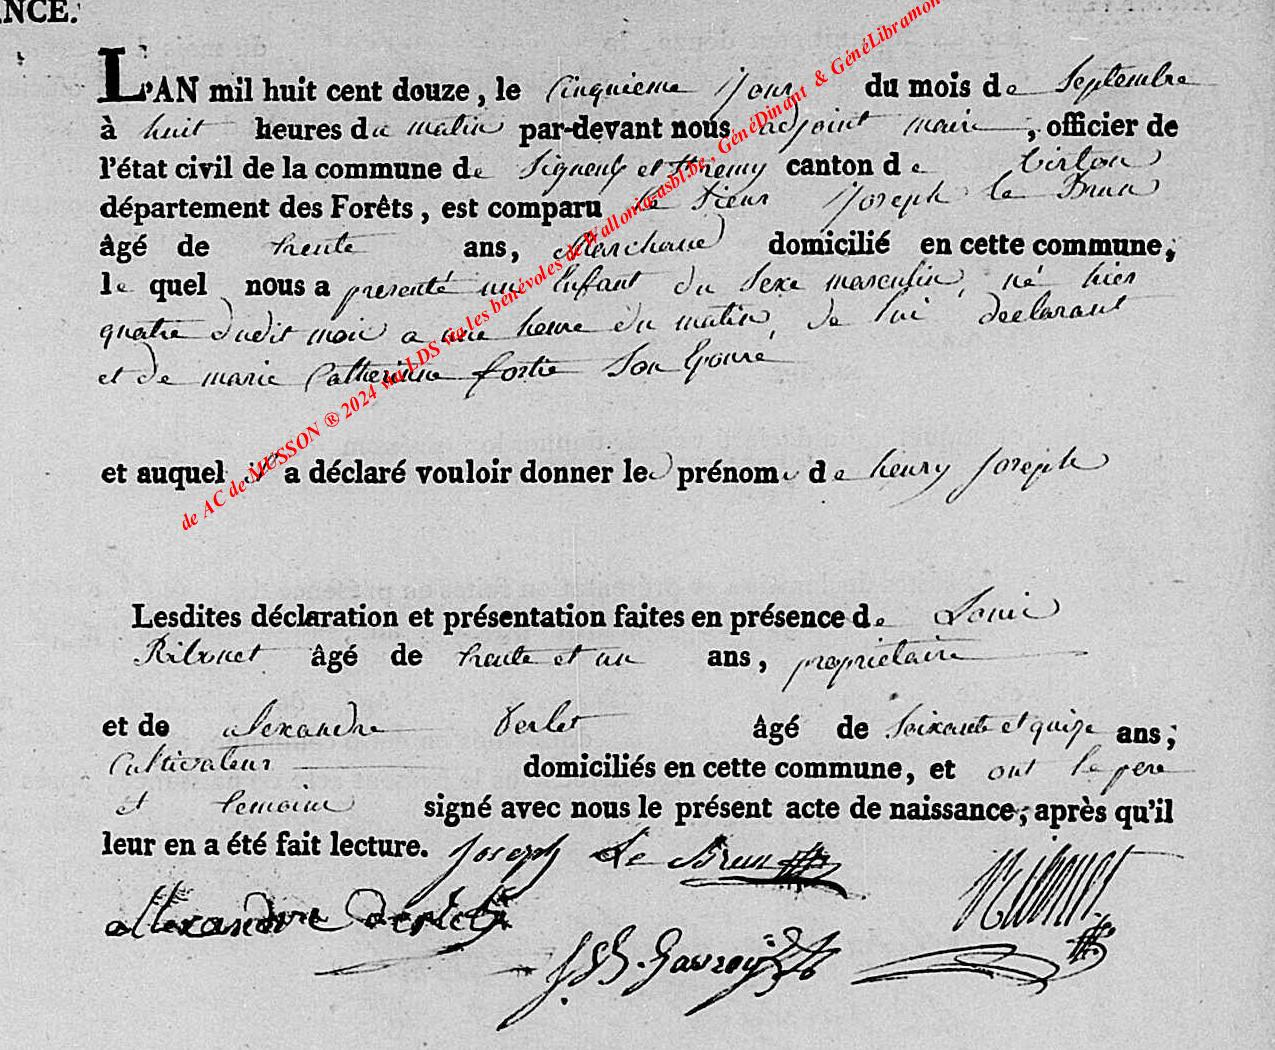 NCE.
L'AN mil huit cent douze, le Cinquieme jour du mois de Septembre
à huit heures du matin par-devant nous adjoint maire, officier de
l'état civil de la commune de Signeulx et canton de Virton
département des Forêts, est comparu le Sieur joseph le Brun
âgé de trente ans, Marchand domicilié en cette commune,
le quel nous a presenté un Enfant du Sexe masculin, né hier
quatre dudit mois a une heure du matin, de lui declarant
et de marie Catherinne fortie Son Epouse
et auquel il a déclaré vouloir donner les prénoms de henry joseph
Lesdites déclaration et présentation faites en présence de Louis
Ribonet âgé de trente et un ans, proprietaire
et de alexandre Derlet âgé de Soixante et quize ans;
Cultivateur domiciliés en cette commune, et ont le pere
et temoins signé avec nous le présent acte de naissance, après qu'il
leur en a été fait lecture. Joseph Le Brun
Ribonet
allexandre
de AC de MUSSON ® 2024 via LDS via les bénévoles de Wallonica-asbl.be, GénéDinant & GénéLibramon